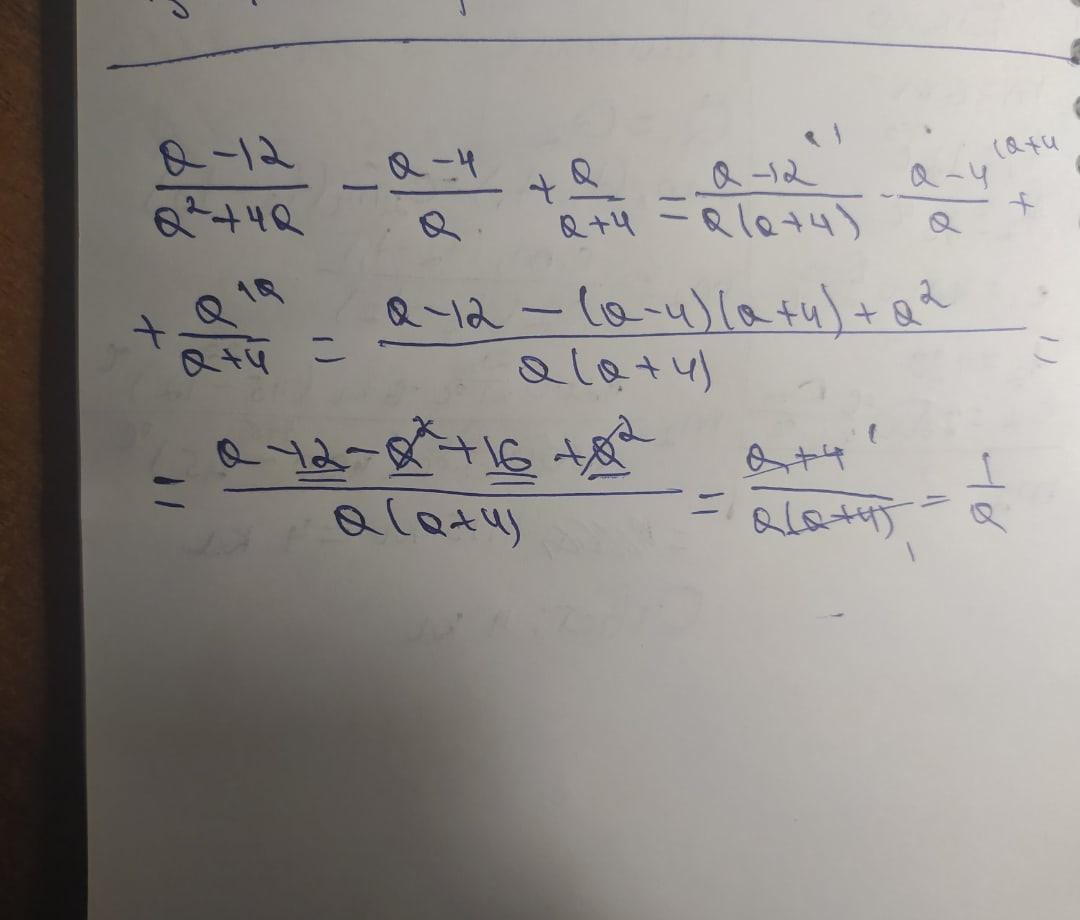 (a-12)/(a²+4a) - (a-4)/a + a/(a+4) = (a-12)/(a(a+4)) \1 - (a-4)/a \a+4 +
+ a/(a+4) \a = (a-12-(a-4)(a+4)+a²)/(a(a+4)) =
= (a-12-a²+16+a²)/(a(a+4)) = (a+4)/(a(a+4)) = 1/a